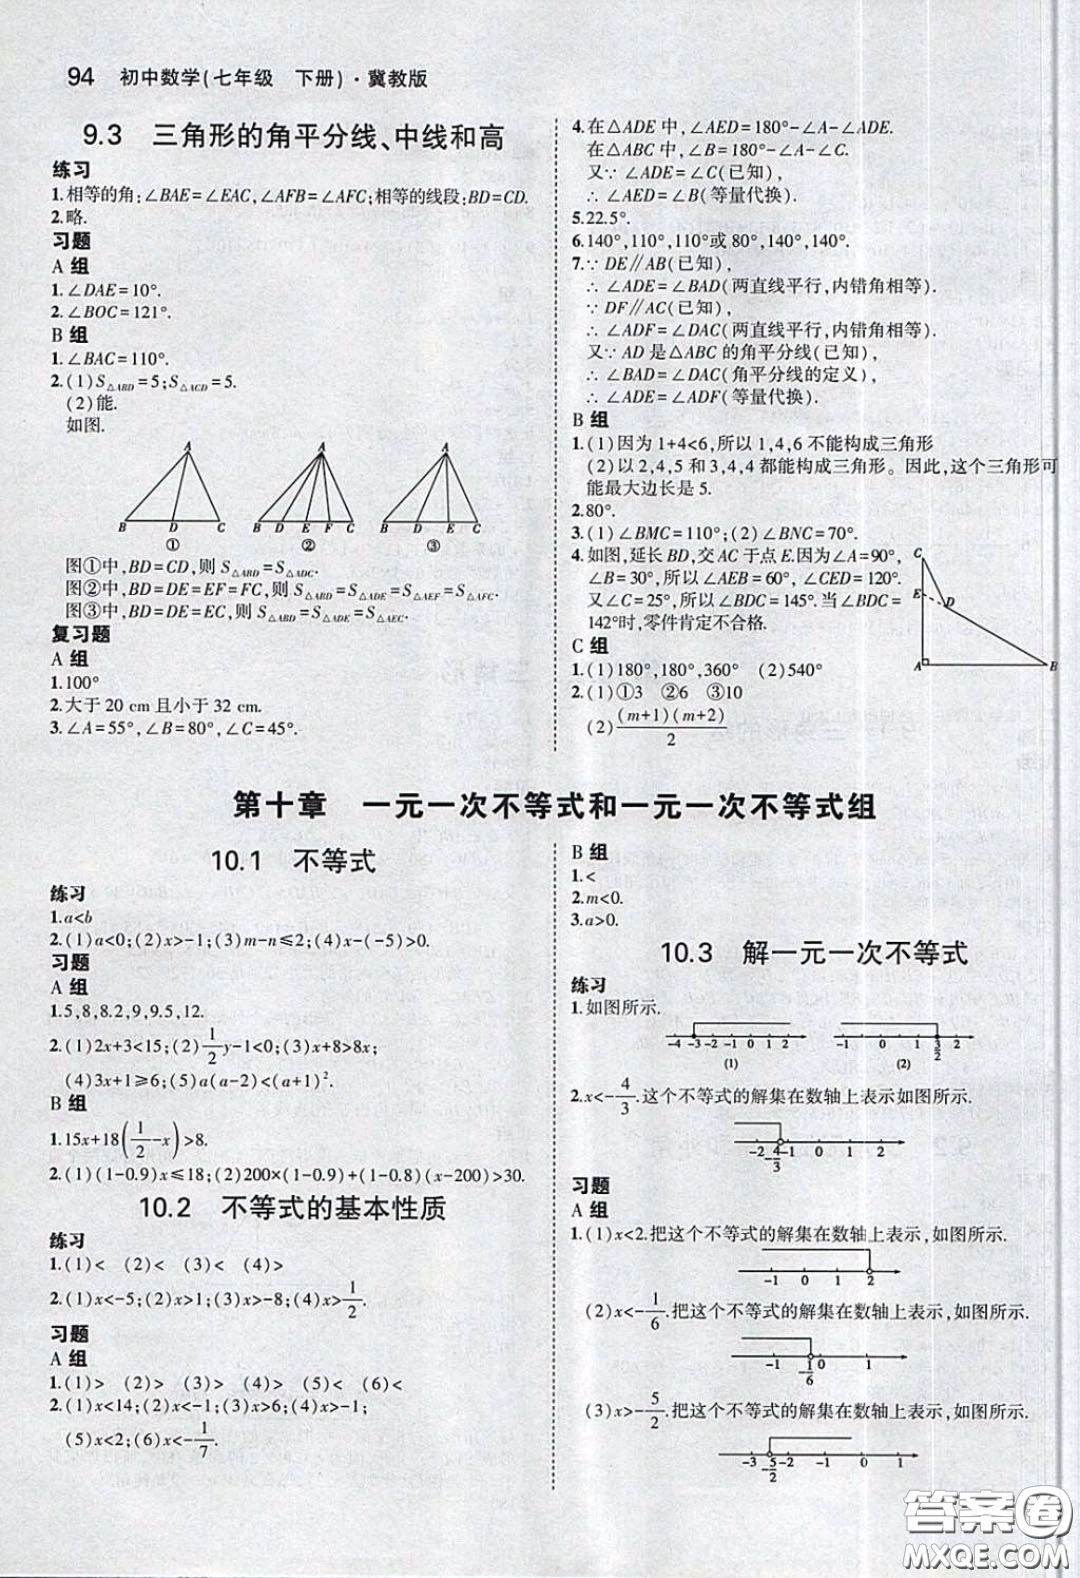 94 初中数学(七年级 下册)·冀教版
9.3 三角形的角平分线、中线和高
练习
1.相等的角:∠BAE=∠EAC,∠AFB=∠AFC;相等的线段:BD=CD.
2.略.
习题
A 组
1.∠DAE=10°.
2.∠BOC=121°.
B 组
1.∠BAC=110°.
2.(1)S△ABD=5;S△ACD=5.
(2)能.
如图.
A A A
B D C B D E F C B D E C
① ② ③
图①中,BD=CD,则 S△ABD=S△ADC.
图②中,BD=DE=EF=FC,则 S△ABD=S△ADE=S△AEF=S△AFC.
图③中,BD=DE=EC,则 S△ABD=S△ADE=S△AEC.
复习题
A 组
1.100°
2.大于 20 cm 且小于 32 cm.
3.∠A=55°,∠B=80°,∠C=45°.
4.在△ADE 中,∠AED=180°-∠A-∠ADE.
在△ABC 中,∠B=180°-∠A-∠C.
又∵∠ADE=∠C(已知),
∴∠AED=∠B(等量代换).
5.22.5°.
6.140°,110°,110°或 80°,140°,140°.
7.∵DE∥AB(已知),
∴∠ADE=∠BAD(两直线平行,内错角相等).
∵DF∥AC(已知),
∴∠ADF=∠DAC(两直线平行,内错角相等).
又∵AD 是△ABC 的角平分线(已知),
∴∠BAD=∠DAC(角平分线的定义),
∴∠ADE=∠ADF(等量代换).
B 组
1.(1)因为 1+4<6,所以 1,4,6 不能构成三角形
(2)以 2,4,5 和 3,4,4 都能构成三角形。因此,这个三角形可
能最大边长是 5.
2.80°.
3.(1)∠BMC=110°;(2)∠BNC=70°.
4.如图,延长 BD,交 AC 于点 E.因为∠A=90°,
∠B=30°,所以∠AEB=60°,∠CED=120°.
又∠C=25°,所以∠BDC=145°.当∠BDC=
142°时,零件肯定不合格.
C
E
D
A B
C 组
1.(1)180°,180°,360° (2)540°
2.(1)①3 ②6 ③10
(2)(m+1)(m+2)/2
第十章 一元一次不等式和一元一次不等式组
10.1 不等式
练习
1.a<b
2.(1)a<0;(2)x>-1;(3)m-n≤2;(4)x-(-5)>0.
习题
A 组
1.5,8,8.2,9,9.5,12.
2.(1)2x+3<15;(2)1/2y-1<0;(3)x+8>8x;
(4)3x+1≥6;(5)a(a-2)<(a+1)².
B 组
1.15x+18(1/2-x)>8.
2.(1)(1-0.9)x≤18;(2)200×(1-0.9)+(1-0.8)(x-200)>30.
10.2 不等式的基本性质
练习
1.(1)< (2)< (3)< (4)>
2.(1)x<-5;(2)x>1;(3)x>-8;(4)x>1/2.
习题
A 组
1.(1)> (2)> (3)> (4)> (5)< (6)<
2.(1)x<14;(2)x<-1;(3)x>6;(4)x>-1;
(5)x<2;(6)x<-1/7.
B 组
1.<
2.m<0.
3.a>0.
10.3 解一元一次不等式
练习
1.如图所示.
-4 -3 -2 -1 0 1 2
(1)
-1 0 1 3/2 2
(2)
2.x<-4/3.这个不等式的解集在数轴上表示如图所示.
-2 -4/3 -1 0 1 2
习题
A 组
1.(1)x<2.把这个不等式的解集在数轴上表示,如图所示.
-1 0 1 2
(2)x<-1/6.把这个不等式的解集在数轴上表示,如图所示.
-1 -1/6 0 1
(3)x>-5/2.把这个不等式的解集在数轴上表示,如图所示.
-3 -5/2 -2 -1 0 1
答案卷
MXQE.COM